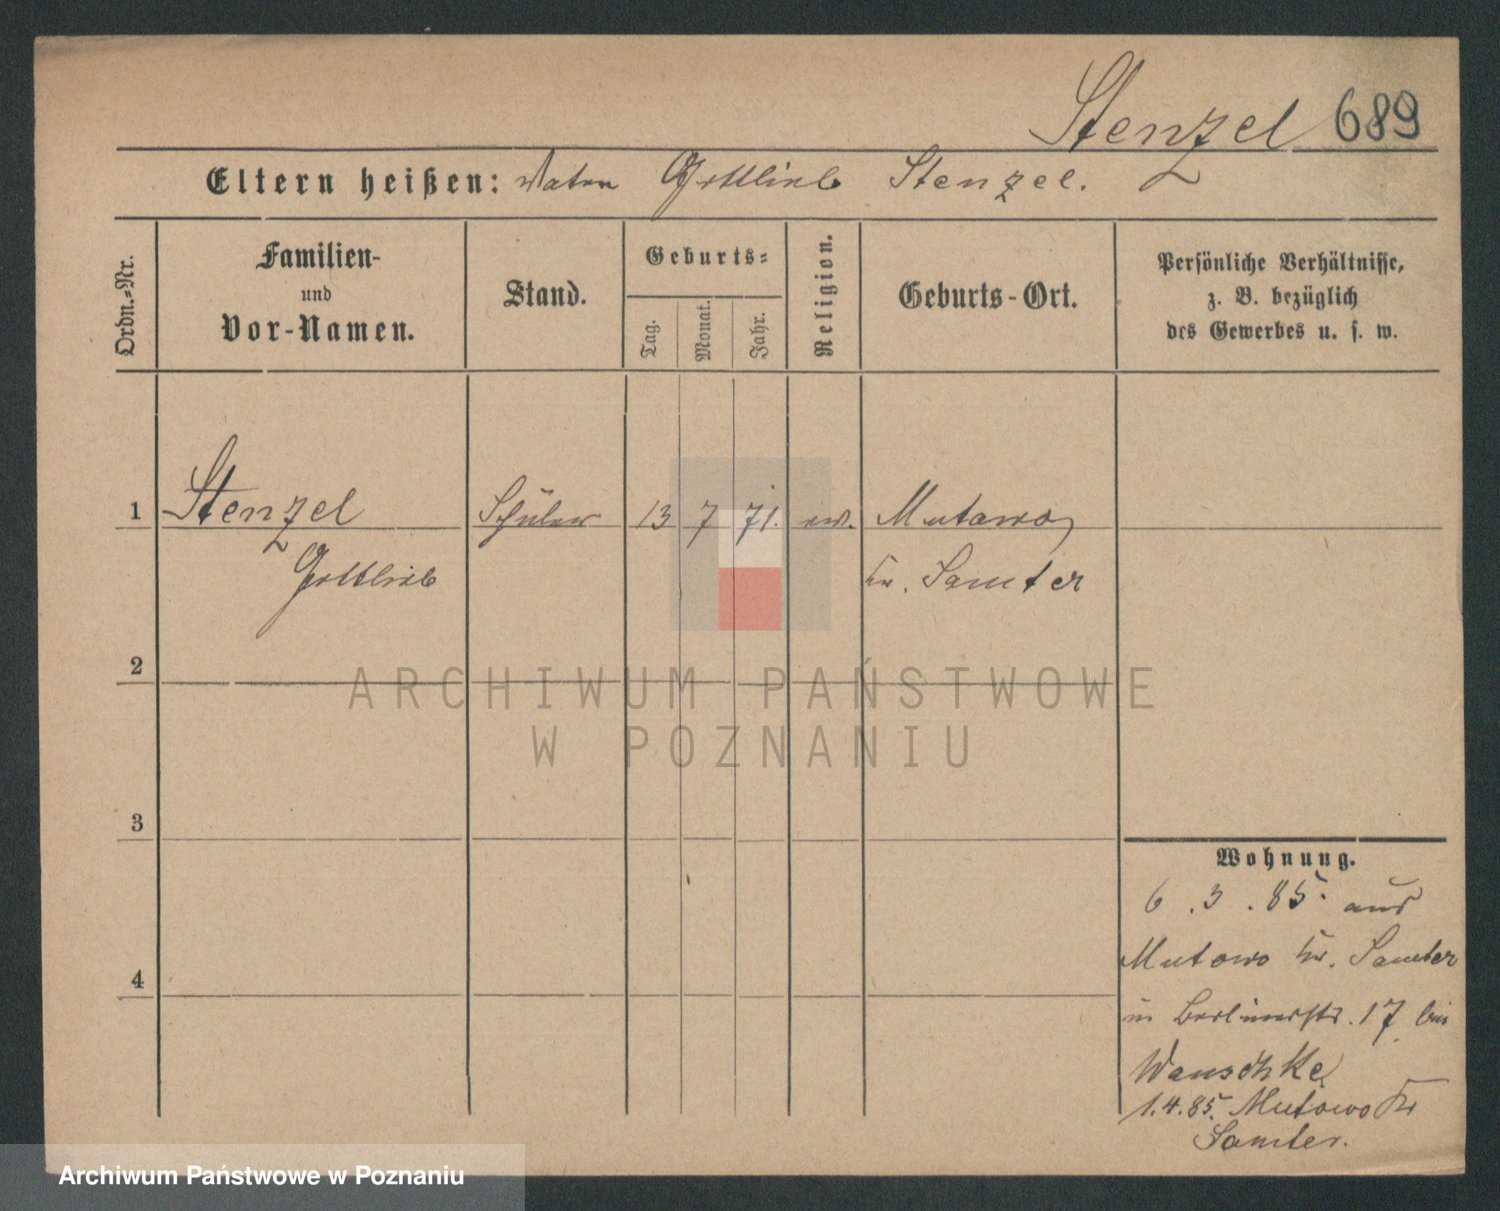 Stenzel 689
Eltern heißen: Vater Gottlieb Stenzel.
Ordn.-Nr.
Familien-
und
Vor-Namen.
Stand.
Geburts-
Tag.
Monat.
Jahr.
Religion.
Geburts-Ort.
Persönliche Verhältnisse,
z. B. bezüglich
des Gewerbes u. s. w.
1 Stenzel Schüler 13 7 71. ev. Mutowo
Gottlieb Kr. Samter
2
ARCHIWUM PAŃSTWOWE
W POZNANIU
3
Wohnung.
6.3.85. aus
4
Mutowo Kr. Samter
in Berlinerstr. 17 bei
Wanschke
1.4.85. Mutowo Kr
Samter.
Archiwum Państwowe w Poznaniu